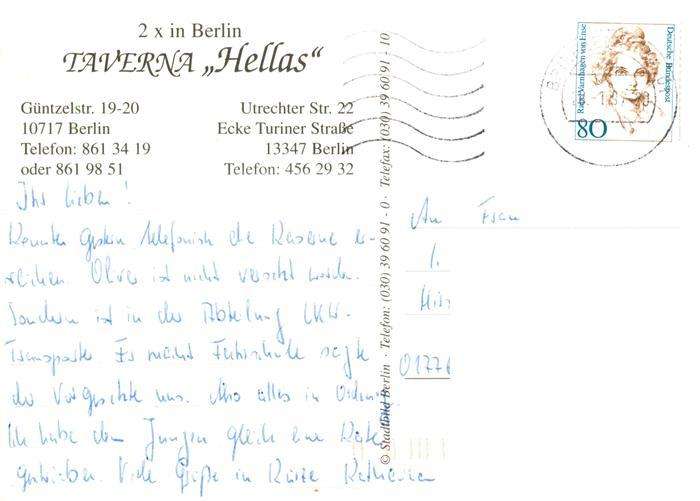 2 x in Berlin
TAVERNA „Hellas“
Güntzelstr. 19-20
10717 Berlin
Telefon: 861 34 19
oder 861 98 51
Utrechter Str. 22
Ecke Turiner Straße
13347 Berlin
Telefon: 456 29 32
Ihr lieben!
Konnten gestern telefonisch die Kaserne er-
reichen. Oliver ist nicht versetzt worden.
Sondern ist in der Abteilung LKW-
Transporte. Er macht Fahrschule sagte
der Vorgesetzte uns. Also alles in Ordnung.
Ich habe dem Jungen gleich eine Karte
geschrieben. Viele Grüße in Kürze
© Stadtbild Berlin · Telefon: (030) 39 60 91 - 0 · Telefax: (030) 39 60 91 - 10
Deutsche Bundespost
Rahel Varnhagen von Ense
80
An Frau